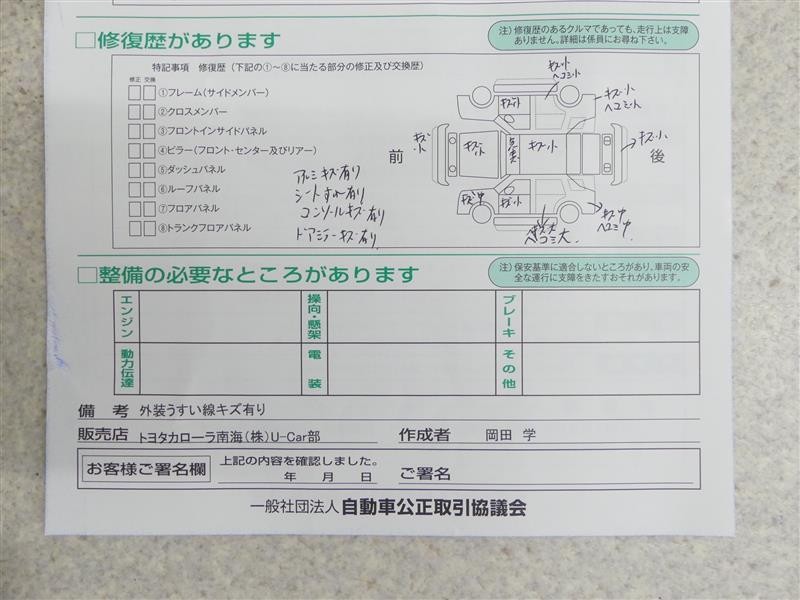 □修復歴があります
注）修復歴のあるクルマであっても、走行上は支障
ありません。詳細は係員にお尋ね下さい。
特記事項 修復歴（下記の①～⑧に当たる部分の修正及び交換歴）
修正 交換
①フレーム（サイドメンバー）
②クロスメンバー
③フロントインサイドパネル
④ピラー（フロント・センター及びリアー）
⑤ダッシュパネル
⑥ルーフパネル
⑦フロアパネル
⑧トランクフロアパネル
アルミキズ有り
シートすれ有り
コンソールキズ有り
ドアミラーキズ有り
前
後
キズ小
ヘコミ小
キズ小
キズ小
ヘコミ小
キズ小
キズ小
キズ小
キズ小
キズ中
キズ小
キズ大
ヘコミ大
キズ中
ヘコミ中
□整備の必要なところがあります
注）保安基準に適合しないところがあり、車両の安
全な運行に支障をきたすおそれがあります。
エンジン
操向・懸架
ブレーキ
動力伝達
電装
その他
備考 外装うすい線キズ有り
販売店 トヨタカローラ南海（株）U-Car部 作成者 岡田 学
お客様ご署名欄
上記の内容を確認しました。
年 月 日
ご署名
一般社団法人 自動車公正取引協議会